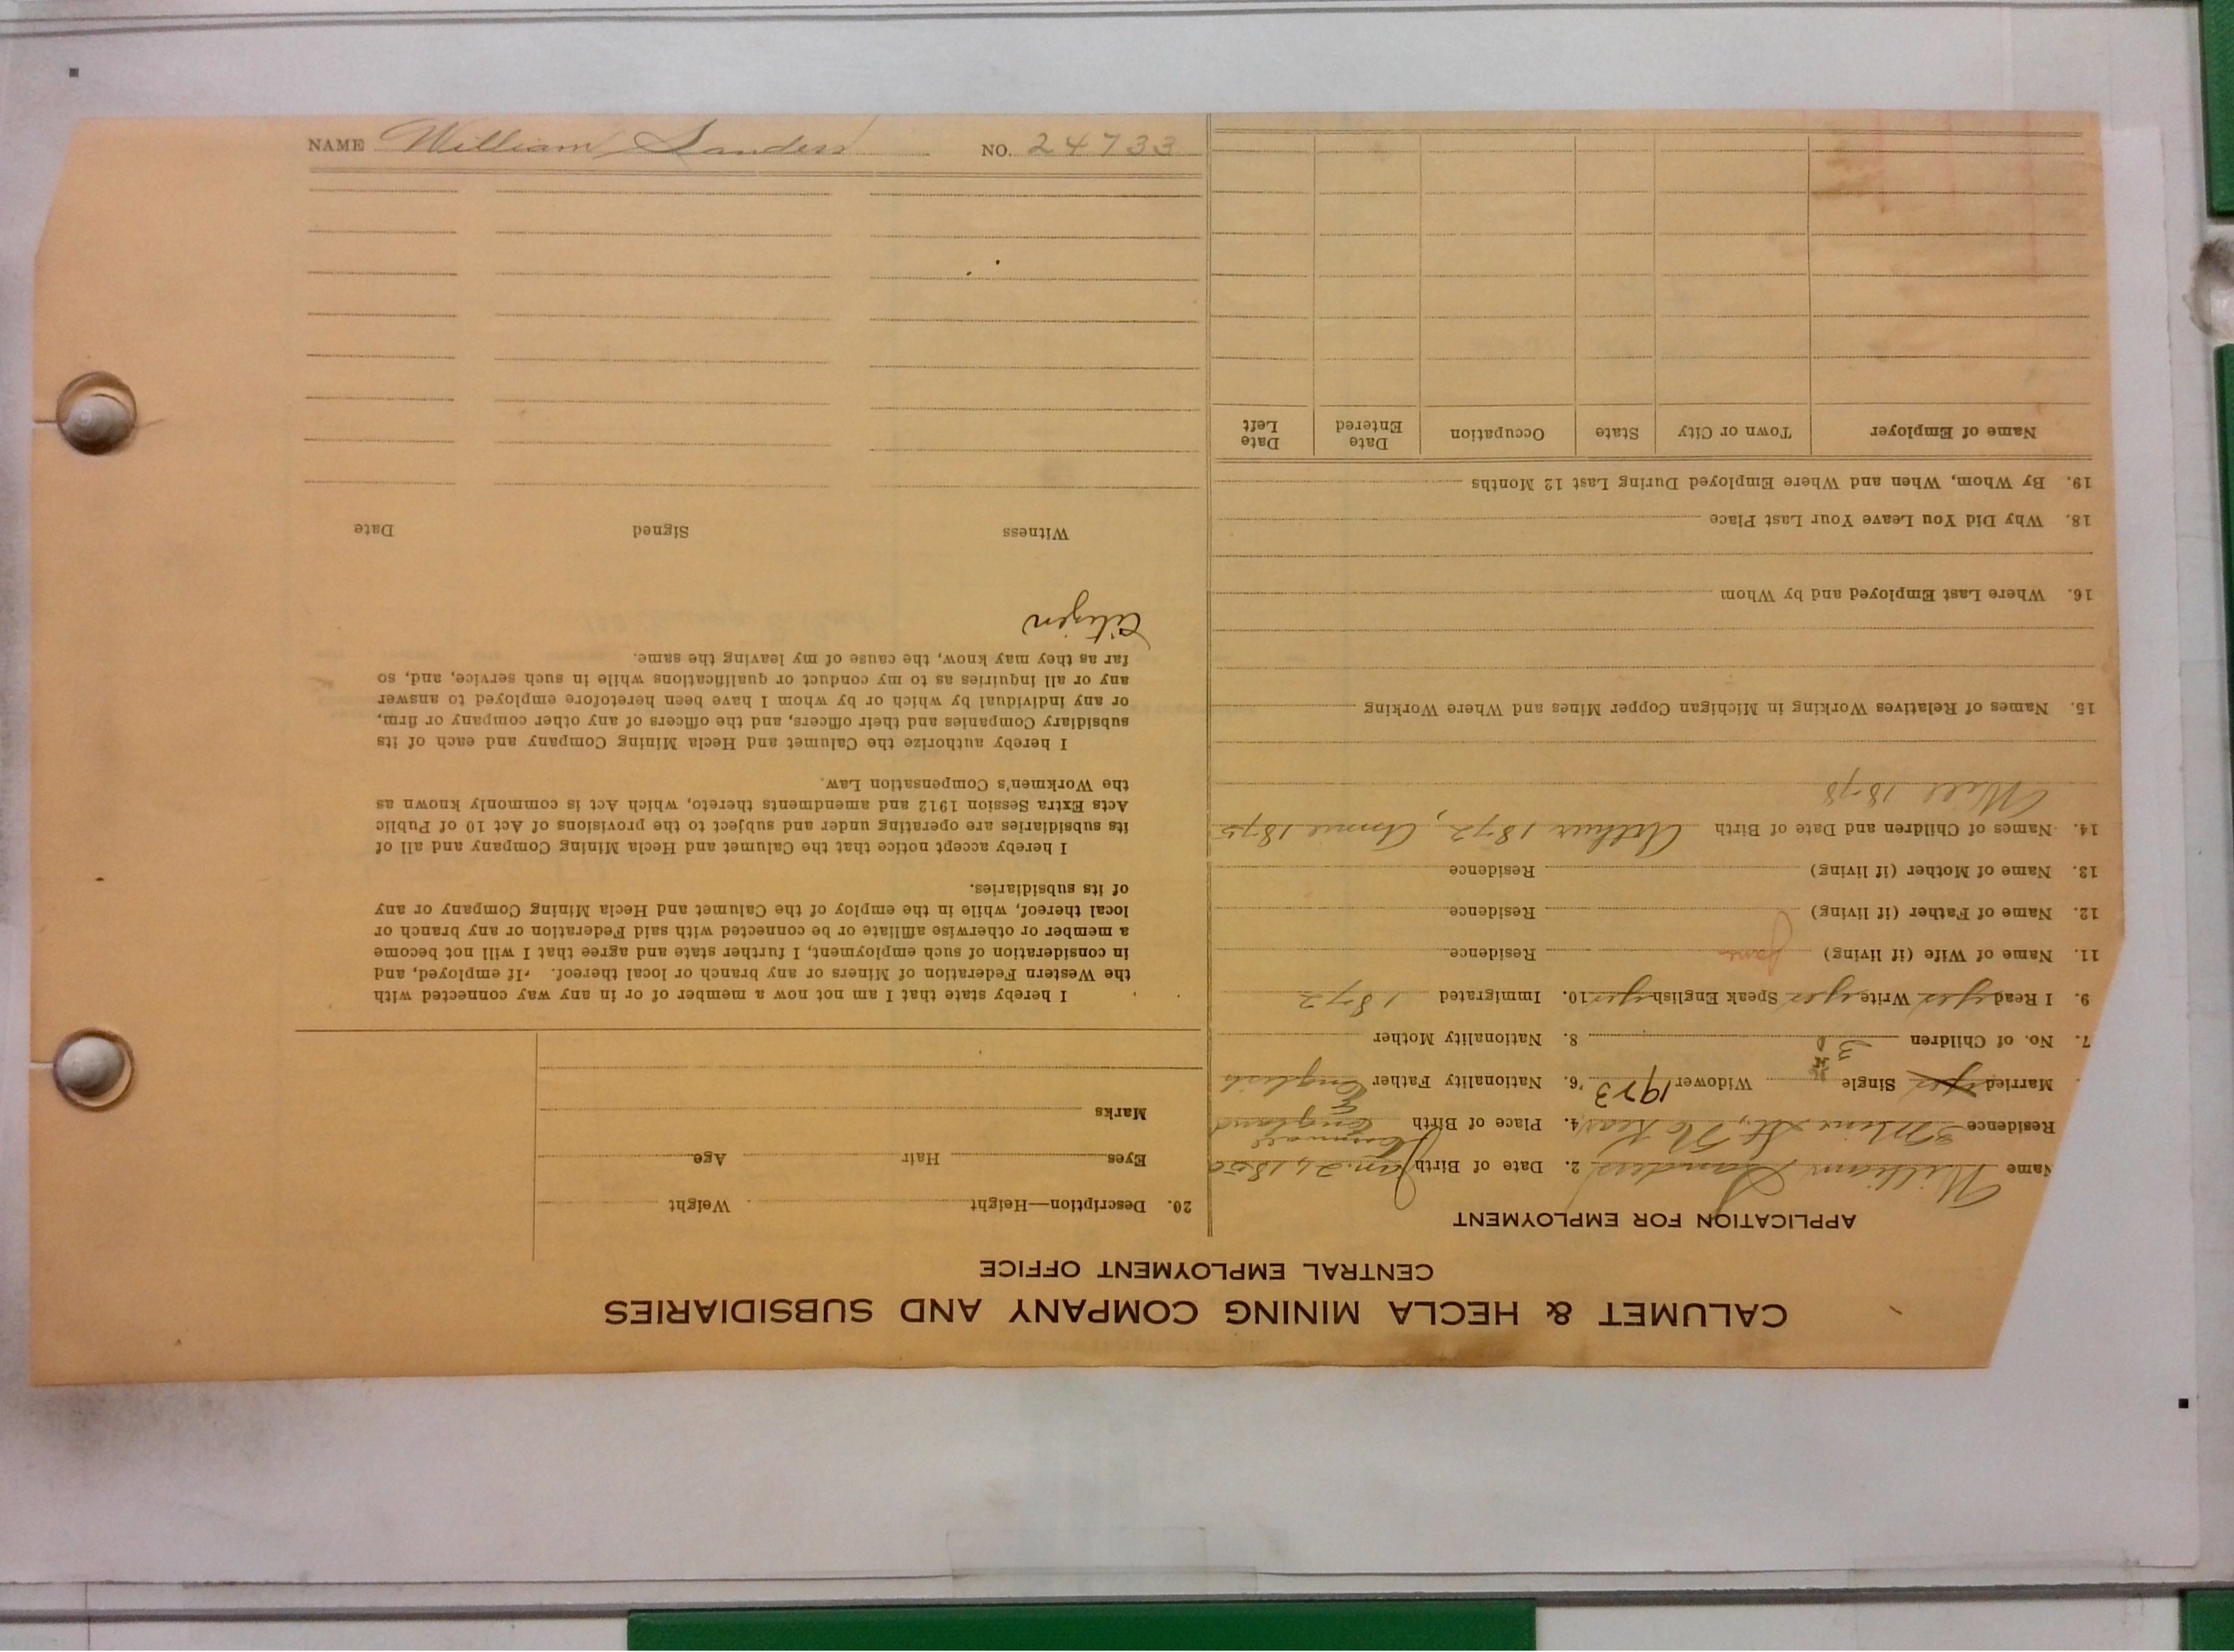 CALUMET & HECLA MINING COMPANY AND SUBSIDIARIES
CENTRAL EMPLOYMENT OFFICE
APPLICATION FOR EMPLOYMENT
Name William Sanders 2. Date of Birth Jan. 24, 1850
Residence Mine St, 4. Place of Birth Cornwall England
Married yes Single Widower 1923 6. Nationality Father English
7. No. of Children 3 8. Nationality Mother
9. I Read yes Write yes Speak English yes 10. Immigrated 1872
11. Name of Wife (if living) Residence
12. Name of Father (if living) Residence
13. Name of Mother (if living) Residence
14. Names of Children and Date of Birth Arthur 1872, Annie 1875
Will 1878
15. Names of Relatives Working in Michigan Copper Mines and Where Working
16. Where Last Employed and by Whom
18. Why Did You Leave Your Last Place
19. By Whom, When and Where Employed During Last 12 Months
Name of Employer Town or City State Occupation Date Entered Date Left
20. Description—Height Weight
Eyes Hair Age
Marks
I hereby state that I am not now a member of or in any way connected with
the Western Federation of Miners or any branch or local thereof. If employed, and
in consideration of such employment, I further state and agree that I will not become
a member or otherwise affiliate or be connected with said Federation or any branch or
local thereof, while in the employ of the Calumet and Hecla Mining Company or any
of its subsidiaries.
I hereby accept notice that the Calumet and Hecla Mining Company and all of
its subsidiaries are operating under and subject to the provisions of Act 10 of Public
Acts Extra Session 1912 and amendments thereto, which Act is commonly known as
the Workmen's Compensation Law.
I hereby authorize the Calumet and Hecla Mining Company and each of its
subsidiary Companies and their officers, and the officers of any other company or firm,
or any individual by which or by whom I have been heretofore employed to answer
any or all inquiries as to my conduct or qualifications while in such service, and, so
far as they may know, the cause of my leaving the same.
Citizen
Witness Signed Date
NAME William Sanders NO. 24733